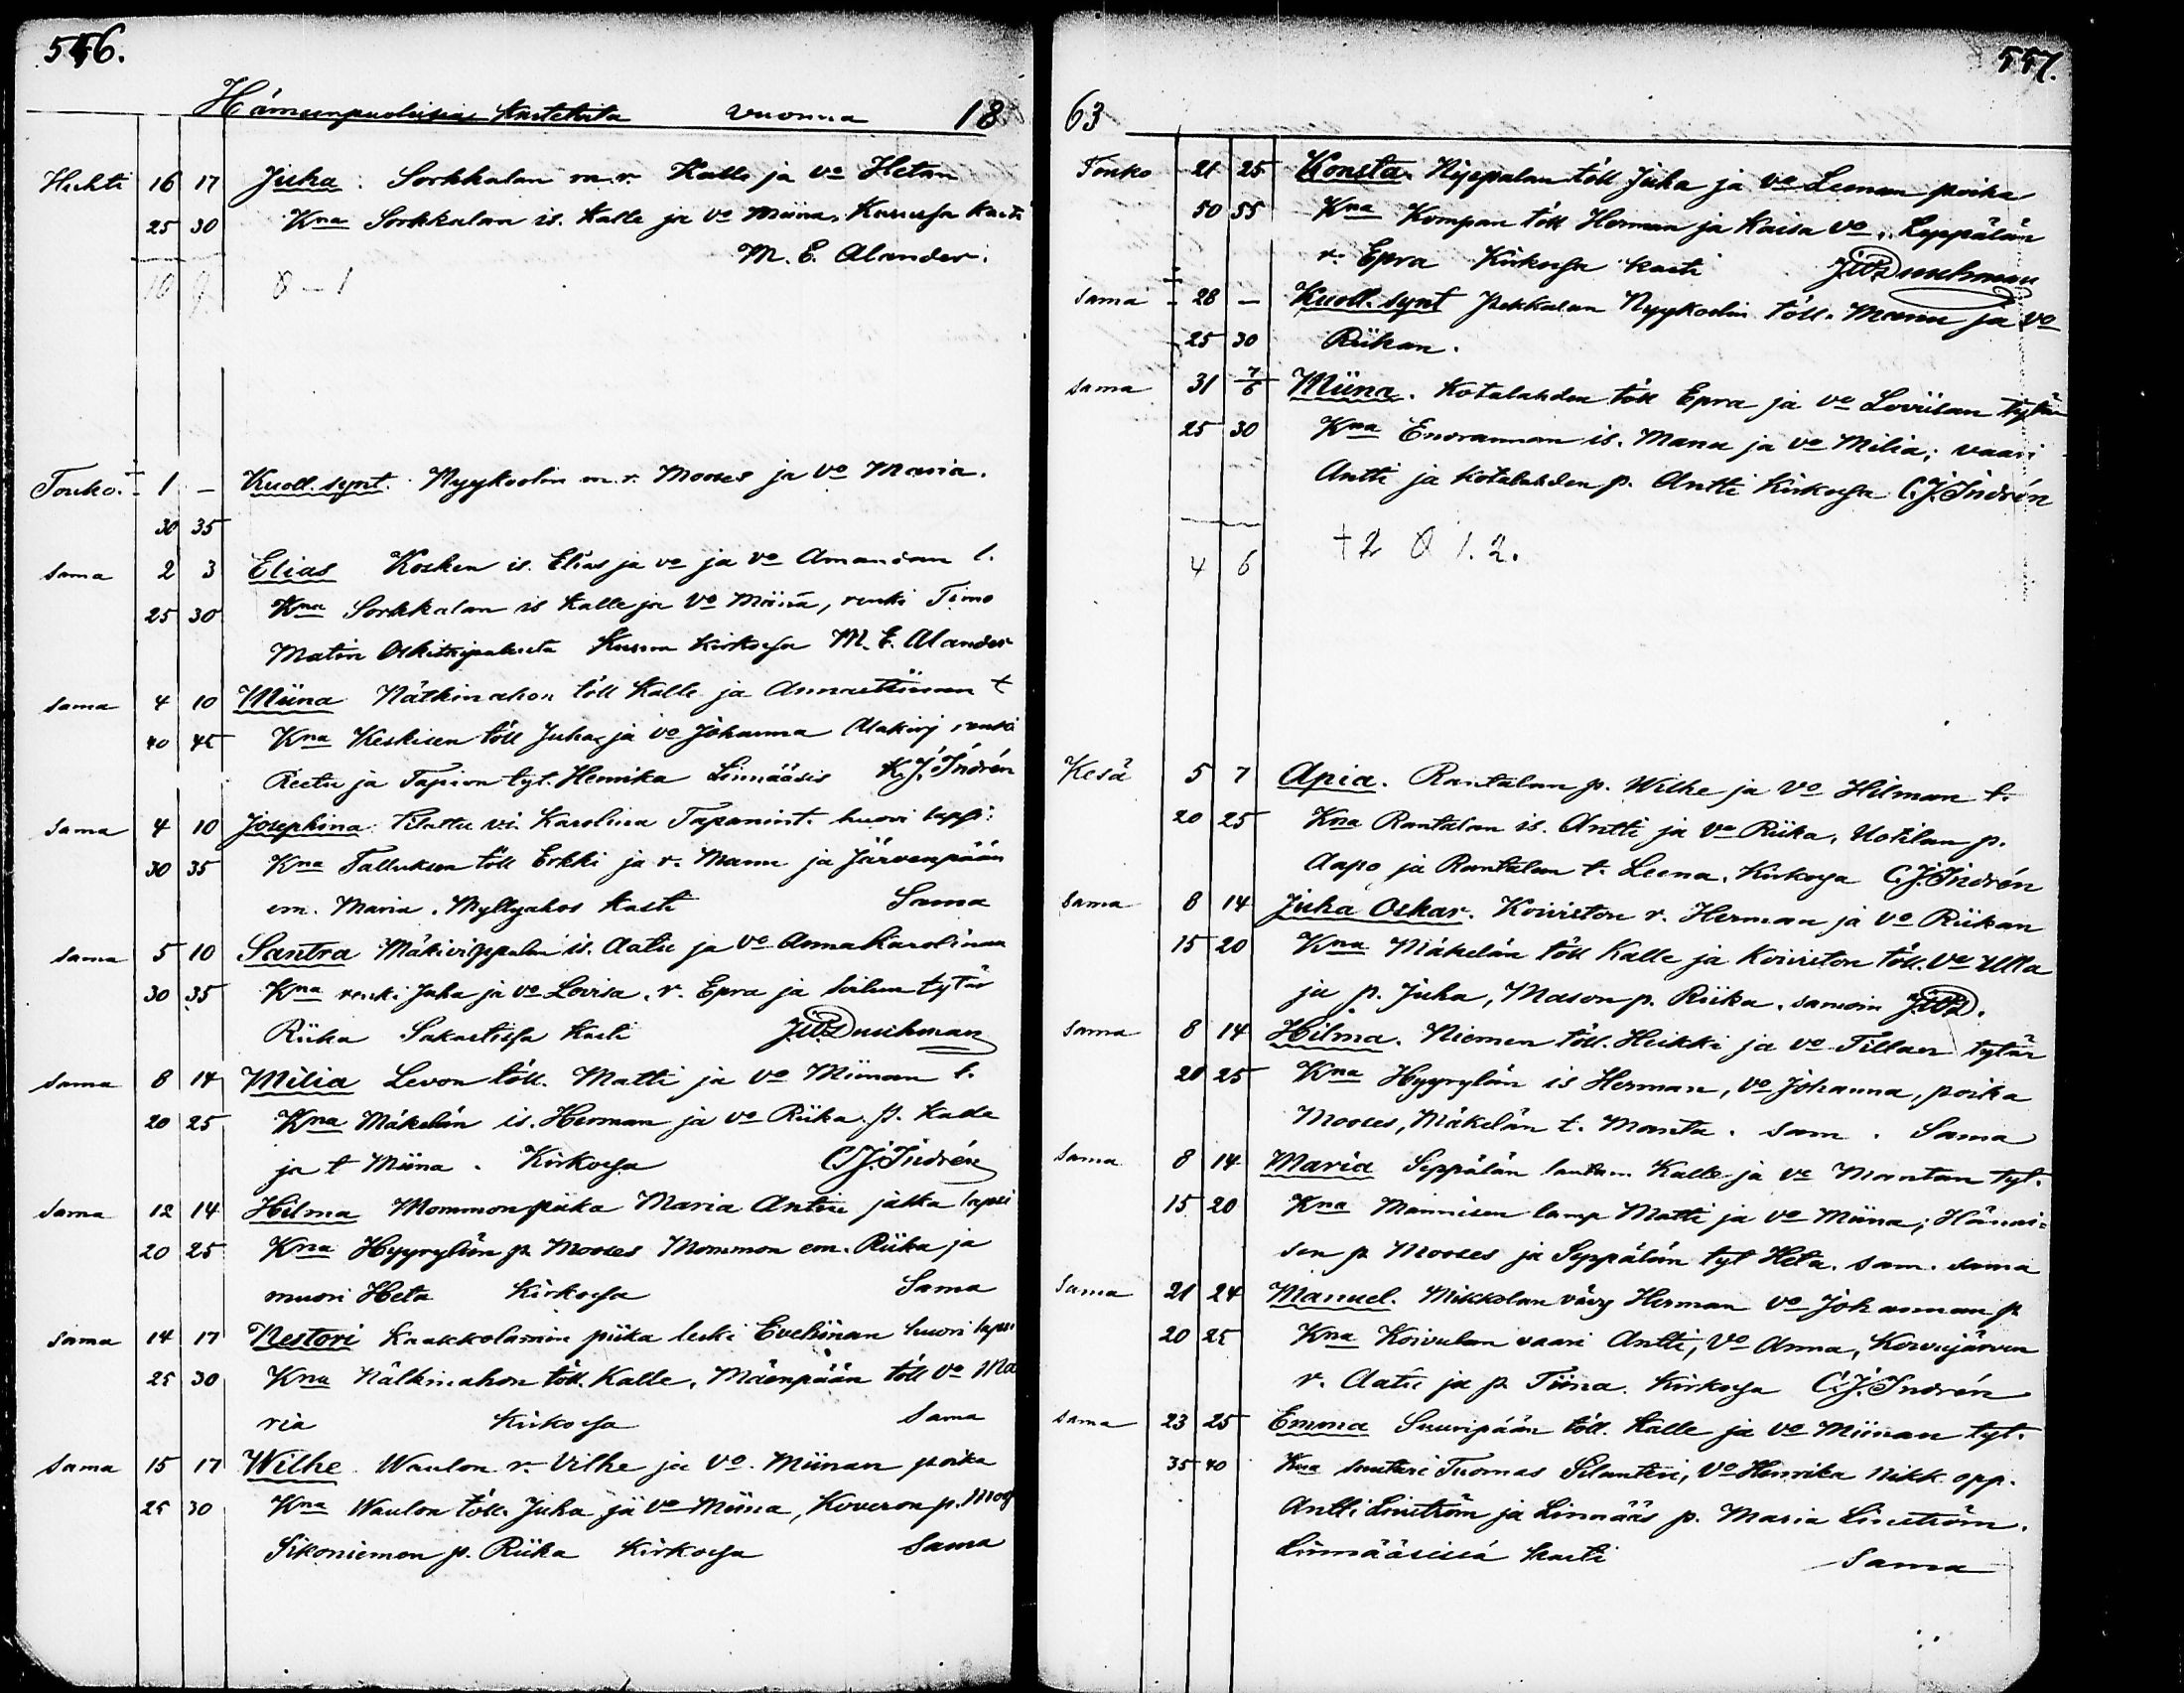 546.
Hämeenpuolisia kastetuita vuonna 18
Huhti 16 17 Juha. Sorkkalan m.r. Kalle ja vo Hetan
25 30 Kna Sorkkalan is. Kalle ja vo Miina, kasti
M. E. Alander.
10 9 0 — 1
Touko. 1 — Kuoll. synt. Nyykoolin m.r. Mooses ja vo Maria.
30 35
sama 2 3 Elias Kosken is. Elias ja vo ja vo Amandan l.
25 30 Kna Sorkkalan is Kalle ja vo Miina, renki Timo
Matin Kirkossa M. E. Alander
sama 4 10 Miina Nätkinahon töll Kalle ja Annastiinan t
40 45 Kna Keskisen töll Juha ja vo Johanna Alakirj renki
Reetu ja Tapion tyt. Henrika Linnääsis K. J. Indrén
sama 4 10 Josephina Karolina Tapanint. huori lapsi:
30 35 Kna Talluksen töll Erkki ja r. Manu ja Järvenpään
em. Maria. Myllyahos kasti Sama
sama 5 10 Santra is. Aatu ja vo Anna Karolinan
30 35 Kna renki Juha ja vo Lovisa, r. Epra ja Soilun tytär
Riika kasti J.W. Duuhman
sama 8 14 Milia Levon töll. Matti ja vo Miinan t.
20 25 Kna Mäkelän is. Herman ja vo Riika. p. Kalle
ja t Miina. Kirkossa C. J. Indrén
sama 12 14 Hilma Mommon piika Maria Antin jalka lapsi
20 25 Kna Hyyrylän p. Mooses Mommon em. Riika ja
muori Heta Kirkossa Sama
sama 14 17 Nestori Knakkolamin piika leski Eveliinan huori lapsi
25 30 Kna Nätkinahon töll. Kalle, Mäenpään töll vo Ma
ria Kirkossa Sama
sama 15 17 Wilhe. Waulon r. Vilhe ja vo. Miinan poika
25 30 Kna Waulon töll. Juha ja vo Miina, Koveron p.
Sikoniemen p. Riika Kirkossa Sama
557.
63
Touko 21 25 Konsta. töll Juha ja vo Leenan poika
50 55 Kna Kompan töll Herman ja Kaisa vo, Leppälän
r. Epra Kirkossa kasti J.W. Duuhman
sama 28 — Kuoll. synt Pekkalan Nyykoolin töll. Manu ja vo
25 30 Riikan.
sama 31 7/6 Miina. Kotalahden töll Epra ja vo Loviisan tytär
25 30 Kna Enorannan is. Manu ja vo Milia; vaari
Antti ja Kotalahden p. Antti Kirkossa C. J. Indrén
4 6 +2 0 1. 2.
Kesä 5 7 Apia. Rantalan p. Wilhe ja vo Hilman t.
20 25 Kna Rantalan is. Antti ja vo Riika, Uotilan p.
Aapo ja Rantalan t. Leena. Kirkossa C. J. Indrén
sama 8 14 Juha Oskar. Koiviston r. Herman ja vo Riikan
15 20 Kna Mäkelän töll Kalle ja Koiviston töll. vo Ulla
ja p. Juha, Mason p. Riika. samoin J.W.D.
sama 8 14 Hilma. Niemen töll. Heikki ja vo Tillan tytär
20 25 Kna Hyyrylän is Herman, vo Johanna, poika
Mooses, Mäkelän t. Manta. sam. Sama
sama 8 14 Maria Seppälän lautam. Kalle ja vo Mantan tyt.
15 20 Kna Mannisen lamp Matti ja vo Miina; Hänni=
sen p Mooses ja Seppälän tyt Heta. sam. sama
sama 21 24 Manuel. Mikkolan vävy Herman vo Johannan p
20 25 Kna Koivulan vaari Antti, vo Anna, Korvijärven
r. Aatu ja p. Tiina. Kirkossa C. J. Indrén
sama 23 25 Emma Suuripään töll. Kalle ja vo Miinan tyt.
35 40 Kna suutari Tuomas Silanteri, vo Henrika Nikk. opp.
Antti Linström ja Linnääs p. Maria Linström.
Linnääsissä kasti Sama